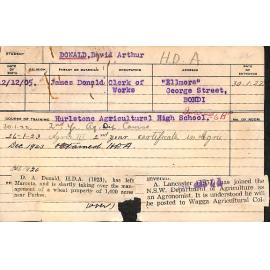 STUDENT
DONALD, David Arthur H.D.A
RELIGION PARENT OR GUARDIAN OCCUPATION ADDRESS
2/12/05. James Donald Clerk of Works "Ellmore" George Street, BONDI 30.1.22
COURSE OF TRAINING
Hurlstone Agricultural High School.
2nd Yr Ag. Course
26-1-23 2nd year certificate in Agric
Dec 1923 Obtained HDA
1926
D. A. Donald, H.D.A. (1923), has left
Marcola, and is shortly taking over the man-
agement of a wheat property of 1,600 acres
near Parkes.
A. Lancaster has joined the
N.S.W. Department of Agriculture as
an Agronomist. It is understood he will
be posted to Wagga Agricultural Col-